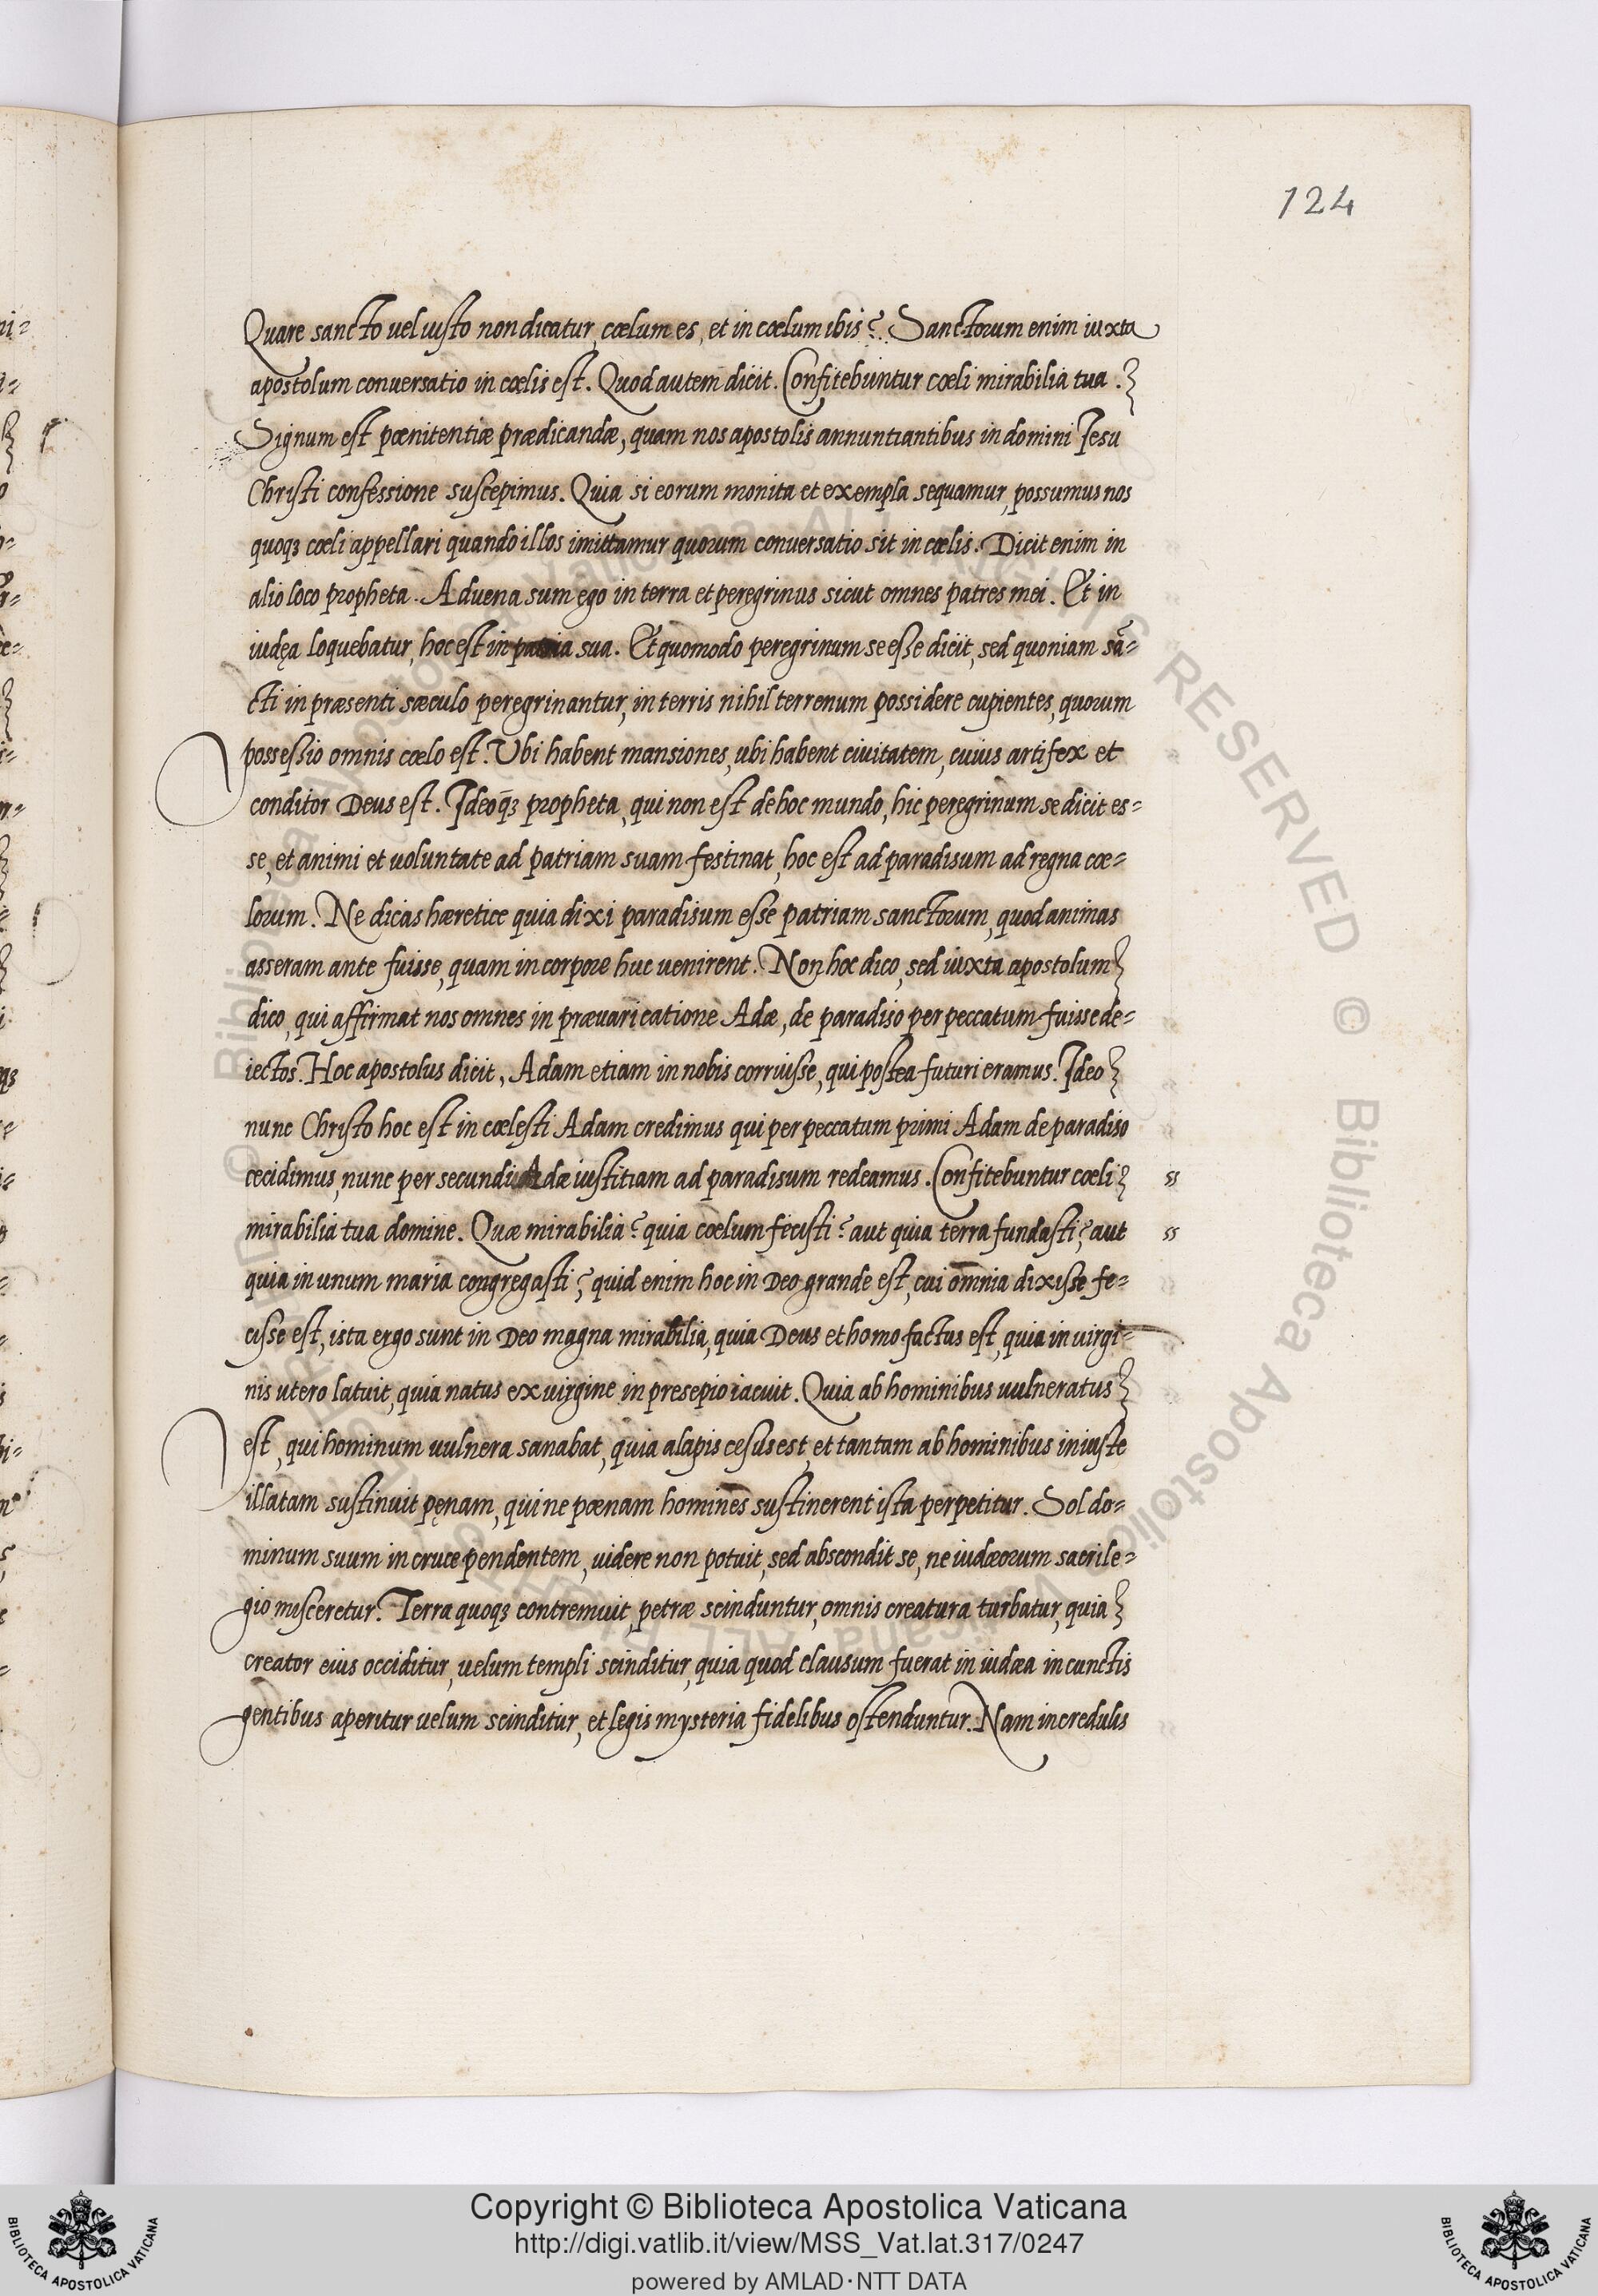 124
Quare sancto uel iusto non dicatur, cœlum es, et in cœlum ibis? Sanctorum enim iuxta
apostolum conuersatio in cœlis est. Quod autem dicit. Confitebuntur cœli mirabilia tua.
Signum est pœnitentiæ prædicandæ, quam nos apostolis annuntiantibus in domini Iesu
Christi confessione suscepimus. Quia si eorum monita et exempla sequamur, possumus nos
quoqȝ cœli appellari quando illos imittamur quorum conuersatio sit in cœlis. Dicit enim in
alio loco propheta. Aduena sum ego in terra et peregrinus sicut omnes patres mei. Et in
iudęa loquebatur, hoc est in patria sua. Et quomodo peregrinum se esse dicit, sed quoniam sā-
cti in præsenti sæculo peregrinantur, in terris nihil terrenum possidere cupientes, quorum
possessio omnis cœlo est. Vbi habent mansiones, ubi habent ciuitatem, cuius artifex et
conditor Deus est. Ideoq̄ȝ propheta, qui non est de hoc mundo, hic peregrinum se dicit es-
se, et animi et uoluntate ad patriam suam festinat, hoc est ad paradisum ad regna cœ-
lorum. Ne dicas hæretice quia dixi paradisum esse patriam sanctorum, quod animas
asseram ante fuisse, quam in corpore huc uenirent. Non hoc dico, sed iuxta apostolum
dico, qui affirmat nos omnes in præuaricatione Adæ, de paradiso per peccatum fuisse de-
iectos. Hoc apostolus dicit, Adam etiam in nobis corruisse, qui postea futuri eramus. Ideo
nunc Christo hoc est in cœlesti Adam credimus qui per peccatum primi Adam de paradiso
cecidimus, nunc per secundi Adæ iustitiam ad paradisum redeamus. Confitebuntur cœli ss
mirabilia tua domine. Quæ mirabilia? quia cœlum fecisti? aut quia terra fundasti? aut ss
quia in unum maria congregasti? quid enim hoc in Deo grande est, cui omnia dixisse fe-
cisse est, ista ergo sunt in Deo magna mirabilia, quia Deus et homo factus est, quia in uirgi-
nis utero latuit, quia natus ex uirgine in presepio iacuit. Quia ab hominibus uulneratus
est, qui hominum uulnera sanabat, quia alapis cesus est, et tantam ab hominibus iniuste
illatam sustinuit pęnam, qui ne pœnam homines sustinerent ista perpetitur. Sol do-
minum suum in cruce pendentem, uidere non potuit, sed abscondit se, ne iudæorum sacrile-
gio misceretur. Terra quoqȝ contremuit, petræ scinduntur, omnis creatura turbatur, quia
creator eius occiditur, uelum templi scinditur, quia quod clausum fuerat in iudæa in cunctis
gentibus aperitur uelum scinditur, et legis mysteria fidelibus ostenduntur. Nam incredulis
Copyright © Biblioteca Apostolica Vaticana
http://digi.vatlib.it/view/MSS_Vat.lat.317/0247
powered by AMLAD·NTT DATA
BIBLIOTECA APOSTOLICA VATICANA
BIBLIOTECA APOSTOLICA VATICANA